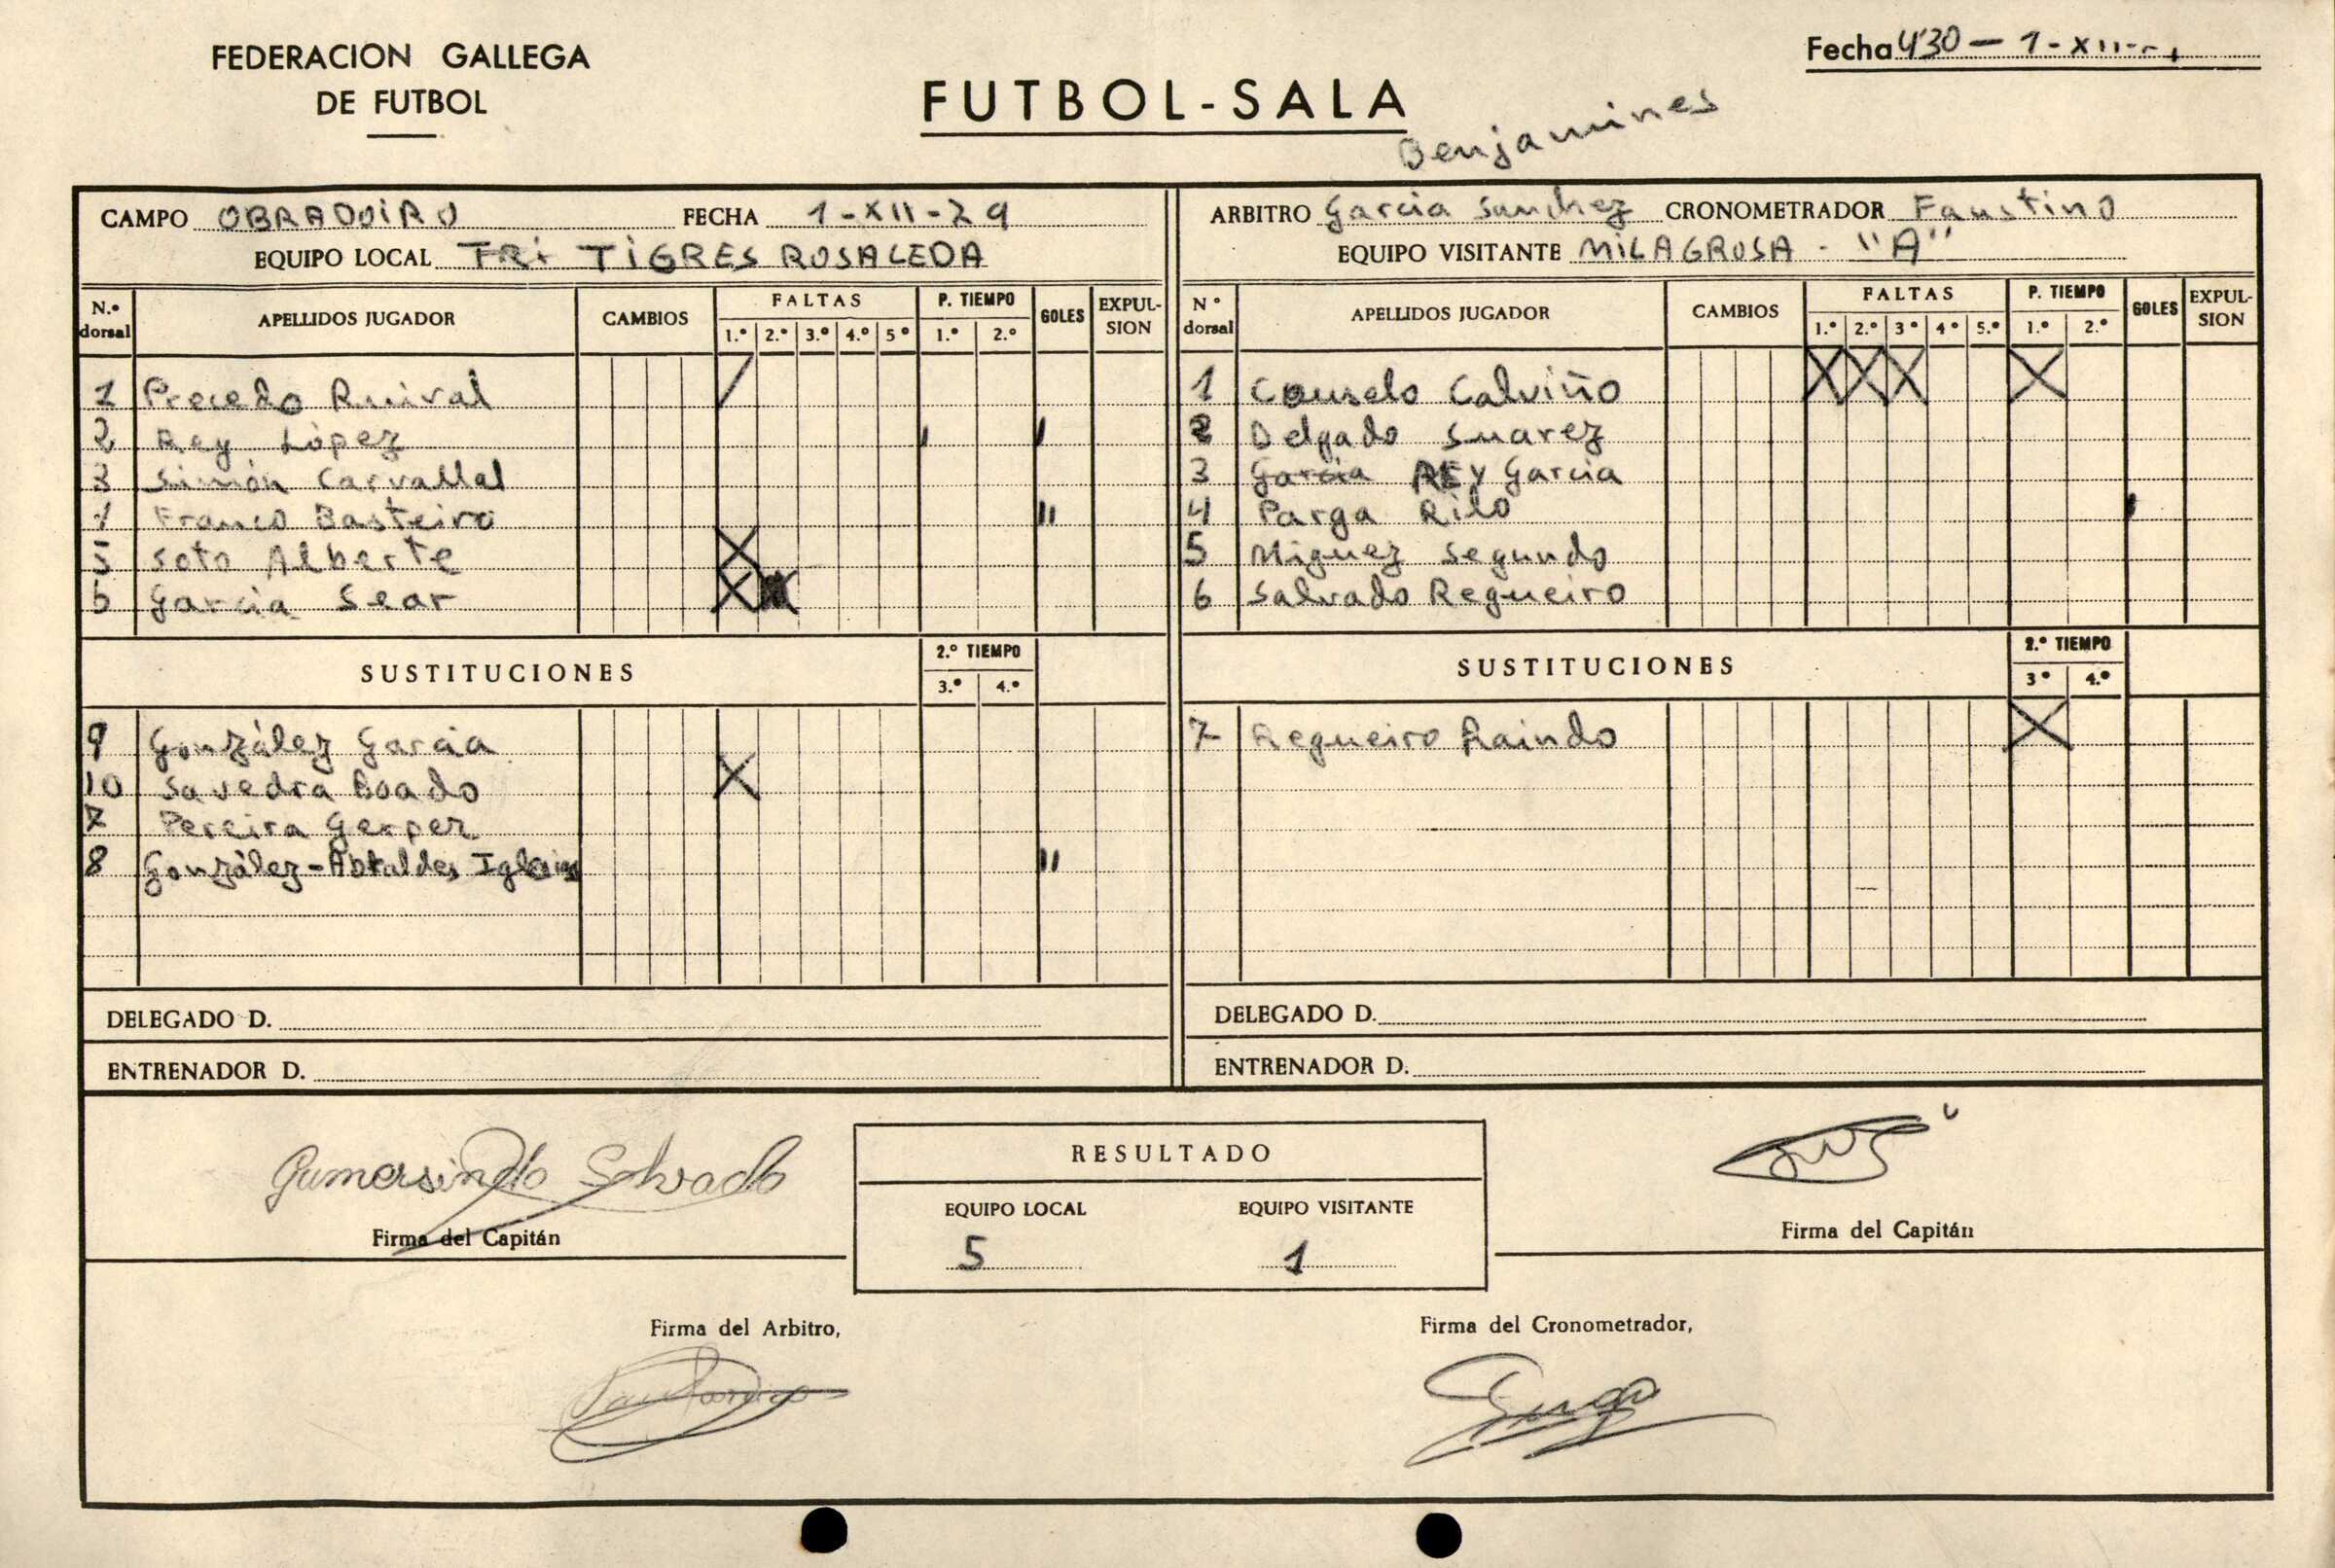 FEDERACION GALLEGA
DE FUTBOL
FUTBOL-SALA
Benjamines
Fecha 4'30 - 1-XII-
CAMPO OBRADOIRO FECHA 1-XII-79
EQUIPO LOCAL TRi TIGRES ROSALEDA
ARBITRO Garcia Sanchez CRONOMETRADOR Faustino
EQUIPO VISITANTE MILAGROSA - "A"
N.º dorsal APELLIDOS JUGADOR CAMBIOS FALTAS 1.º 2.º 3.º 4.º 5º P. TIEMPO 1.º 2.º GOLES EXPULSION
1 Precedo Ruival
2 Rey López
3 Simón Carvallal
4 Franco Basteiro
5 Soto Alberte
6 Garcia Sear
SUSTITUCIONES 2.º TIEMPO 3.º 4.º
9 González Garcia
10 Savedra Boado
7 Pereira Gerpez
8 González-Abraldes Iglesias
DELEGADO D.
ENTRENADOR D.
Nº dorsal APELLIDOS JUGADOR CAMBIOS FALTAS 1.º 2.º 3º 4º 5.º P. TIEMPO 1.º 2.º GOLES EXPULSION
1 Couselo Calviño
2 Delgado Suarez
3 Garcia REY Garcia
4 Parga Rilo
5 Miguez Segundo
6 Salvado Regueiro
SUSTITUCIONES 2.º TIEMPO 3º 4.º
7 Regueiro Raindo
DELEGADO D.
ENTRENADOR D.
Gumersindo Salvado
Firma del Capitán
RESULTADO
EQUIPO LOCAL EQUIPO VISITANTE
5 1
Firma del Capitán
Firma del Arbitro,
Firma del Cronometrador,